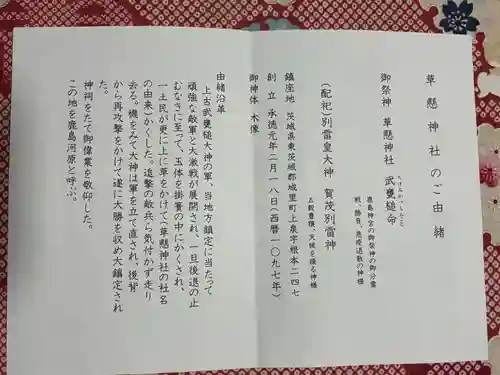 草懸神社のご由緒
御祭神 草懸神社 武甕槌命
たけみかづちのみこと
鹿島神宮の御祭神の御分霊
戦、勝負、悪疫退散の神様
(配祀)別雷皇大神 賀茂別雷神
五穀豊穣、天候を操る神様
鎮座地 茨城県東茨城郡城里町上泉字根本二四七
創立 承徳元年二月一八日(西暦一〇九七年)
御神体 木像
由緒沿革
上古武甕槌大神の軍、当地方鎮定に当たって
頑強な敵軍と大激戦が展開され、一旦後退の止
むなきに至って、玉体を掛藁の中にかくされ、
一土民が更に上に草をかけて(草懸神社の社名
の由来)かくした。追撃の敵兵ら気付かず走り
去る。機をみて大神は軍を立て直され、後背
から再攻撃をかけて遂に大勝を収め大鎮定され
た。
神祠をたて御偉業を敬仰しました。
この地を鹿島河原と呼ぶ。